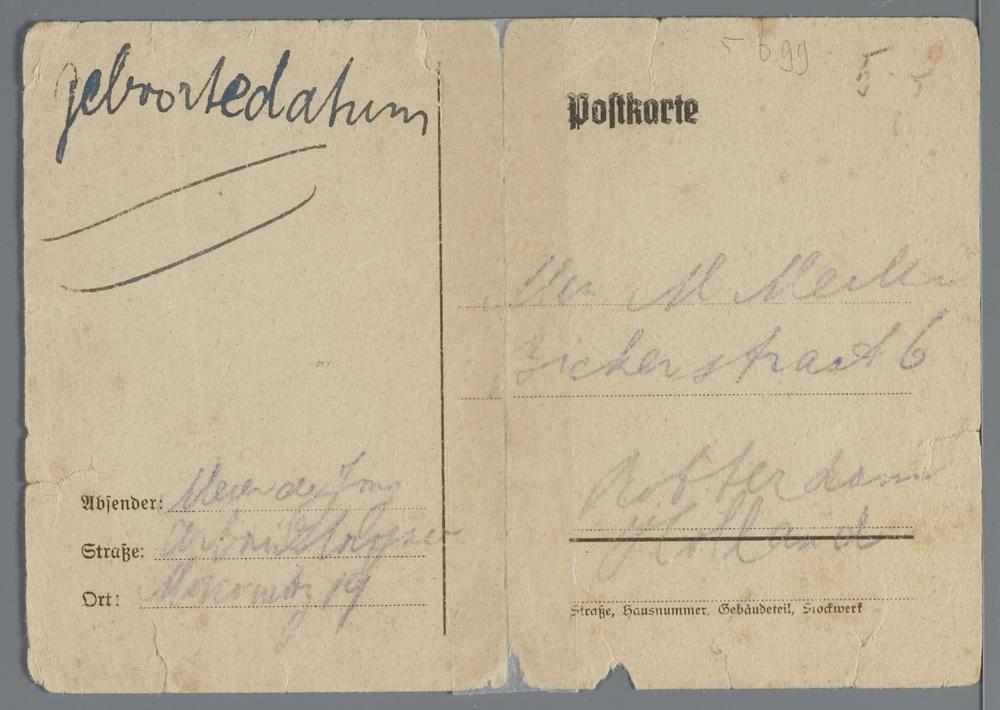 geboortedatum
Absender: Meier de Jong
Straße: Arbeitslager
Ort: Monowitz
5 699
5
Postkarte
M
straat 6
Rotterdam
Holland
Straße, Hausnummer, Gebäudeteil, Stockwerk